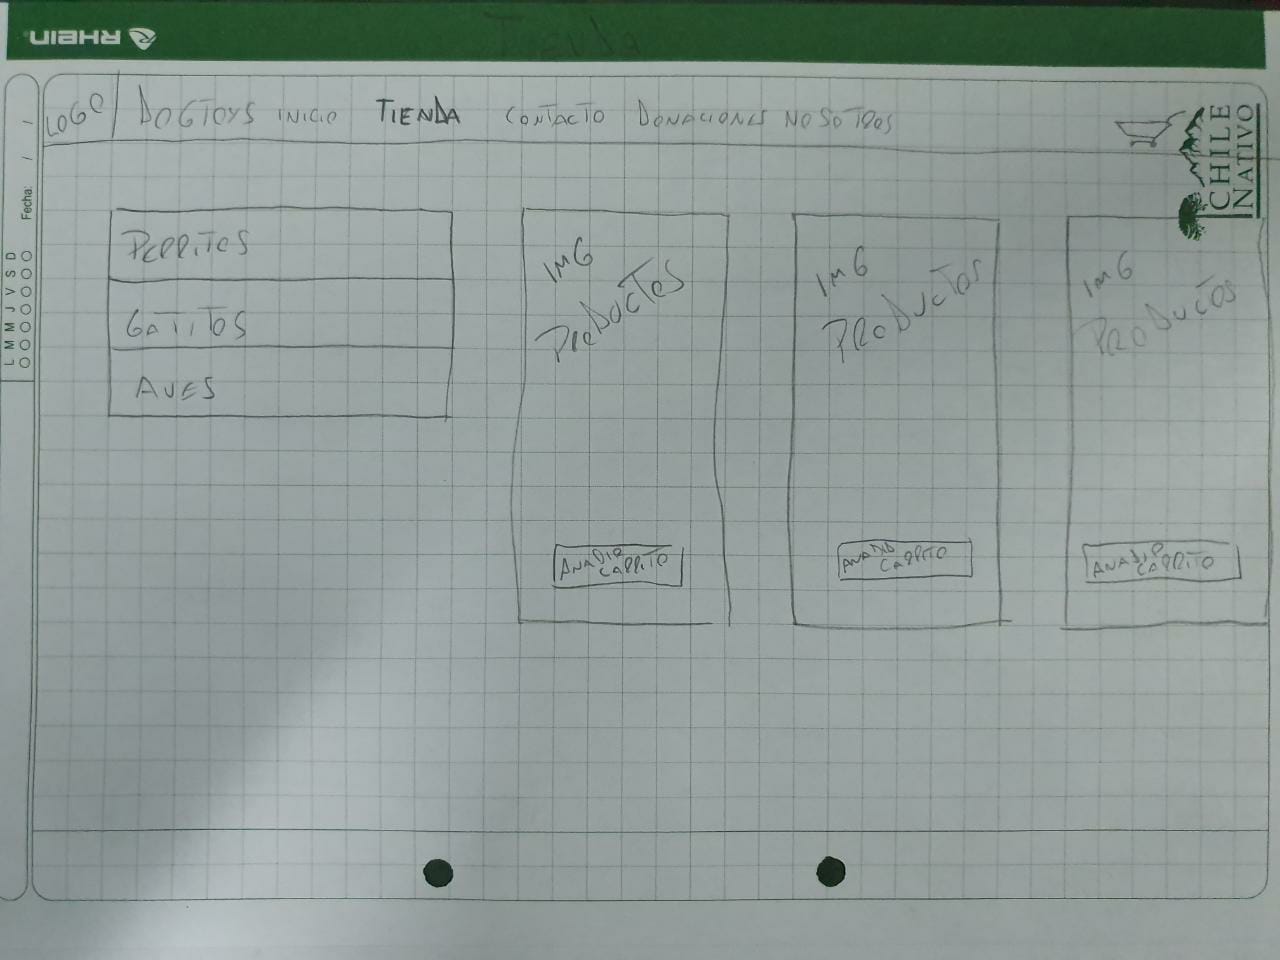 Tienda
RHEIN
LOGO DOGTOYS INICIO TIENDA CONTACTO DONACIONES NOSOTROS
CHILE
NATIVO
Fecha: / /
L M M J V S D
PERRITOS
GATITOS
AVES
IMG
PRODUCTOS
AÑADIR
CARRITO
IMG
PRODUCTOS
AÑADIR
CARRITO
IMG
PRODUCTOS
AÑADIR
CARRITO